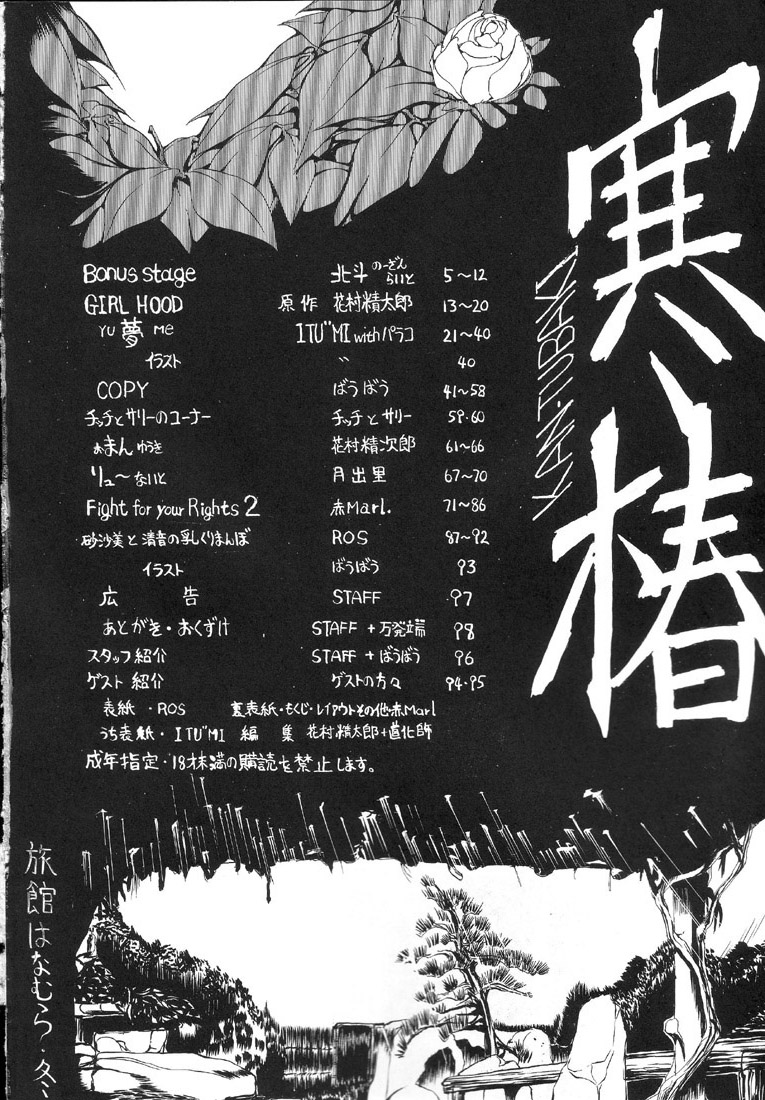 寒椿
KAN・TUBAKI
Bonus stage 北斗のーざんらいと 5〜12
GIRL HOOD 原作 花村精太郎 13〜20
YU 夢 Me ITU"MI with パラコ 21〜40
イラスト 〃 40
COPY ばうばう 41〜58
チッチとサリーのコーナー チッチとサリー 59・60
おまんゆうき 花村精次郎 61〜66
リュ〜ないと 月出里 67〜70
Fight for your Rights 2 赤Marl. 71〜86
砂沙美と清音の乳しぼりまんぼ ROS 87〜92
イラスト ばうばう 93
広告 STAFF 97
あとがき・おくずけ STAFF + 万発端 98
スタッフ紹介 STAFF + ばうばう 96
ゲスト紹介 ゲストの方々 94・95
表紙・ROS 裏表紙・もくじ・レイアウトその他・赤Marl
うち表紙・ITU"MI 編集 花村精太郎+道化師
成年指定・18才未満の購読を禁止します。
旅館はなむら・冬